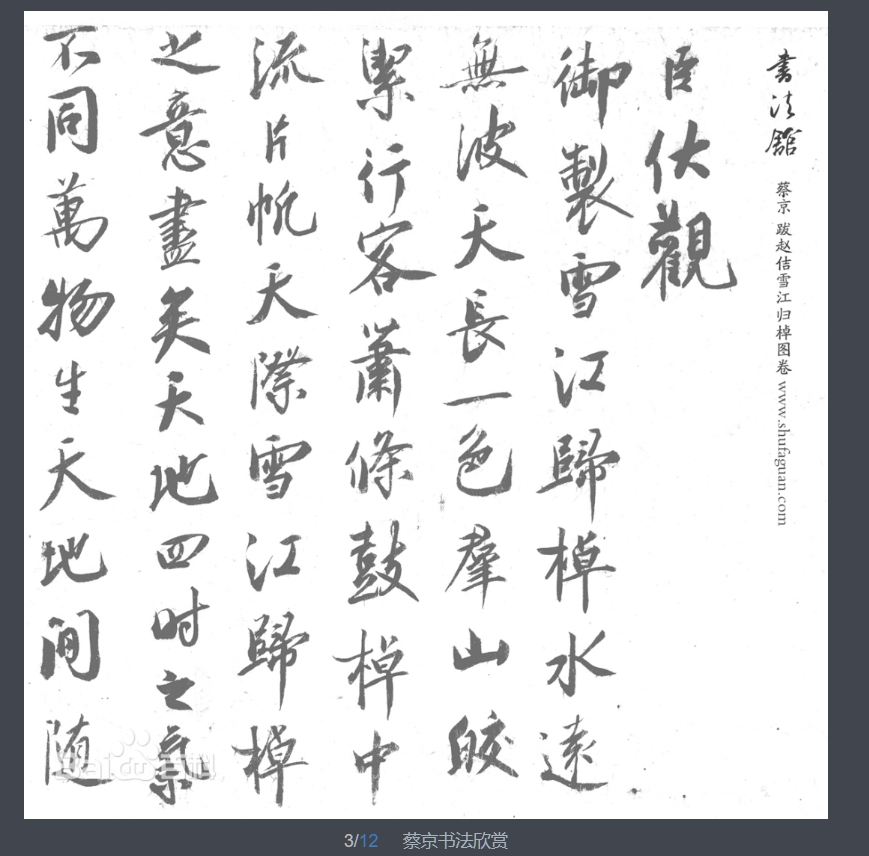 書法館 蔡京 跋赵佶雪江归棹图卷 www.shufaguan.com
臣伏觀
御製雪江歸棹水遠
無波天長一色羣山皎
潔行客蕭條鼓棹中
流片帆天際雪江歸棹
之意盡矣天地四时之氣
不同萬物生天地间随
Bai 百科
3/12 蔡京书法欣赏